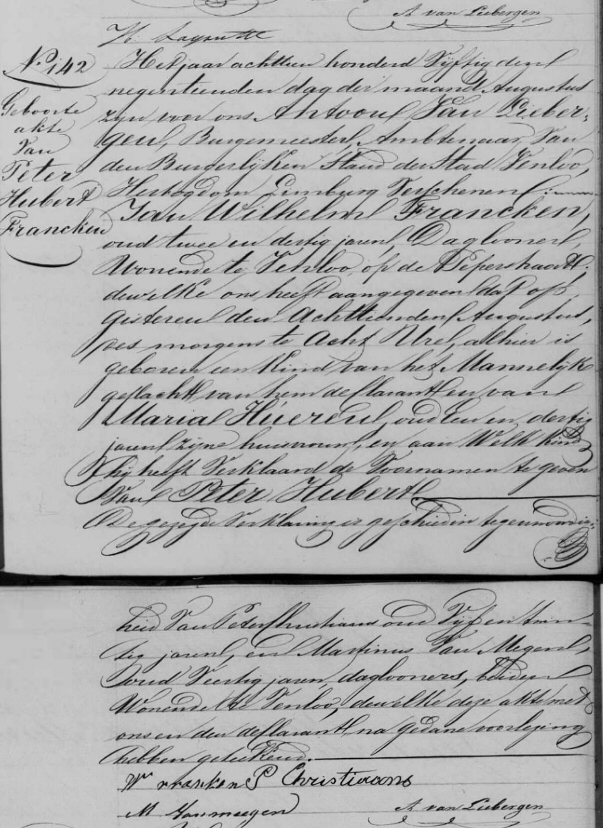 A. van Liebergen
No. 142
Geboorte
akte
van
Peter
Hubert
Francken
Het jaar achttien honderd Vyftig den
negentienden dag der maand Augustus
zyn voor ons Antoon Van Lieber-
gen, Burgemeester, Ambtenaar van
den Burgerlyken Stand der Stad Venloo,
Hertogdom Limburg Verschenen:
Jan Wilhelm Francken,
oud twee en dertig jaren, Daglooner,
Wonende te Venloo, op de
dewelke ons heeft aangegeven dat op
gisteren den Achttienden Augustus,
des morgens te Acht Ure, alhier is
geboren een Kind van het Mannelyk
geslacht van hem declarant en van
Maria Hueren, oud een en dertig
jaren, zyne huisvrouw, en aan Welk Kind
hy heeft Verklaard de Voornamen te geven
Van Peter Hubert
De gezegde Verklaring is geschied in tegenwoordig-
heid Van Peter Christiaans oud Vyf en
tig jaren, en Martinus Van Megen,
oud Veertig jaren, daglooners, beiden
Wonende te Venloo, dewelke deze akte met
ons en den declarant, na gedane voorlezing
hebben geteekend.
W francken P Christiaans
M Vanmeegen A. van Liebergen